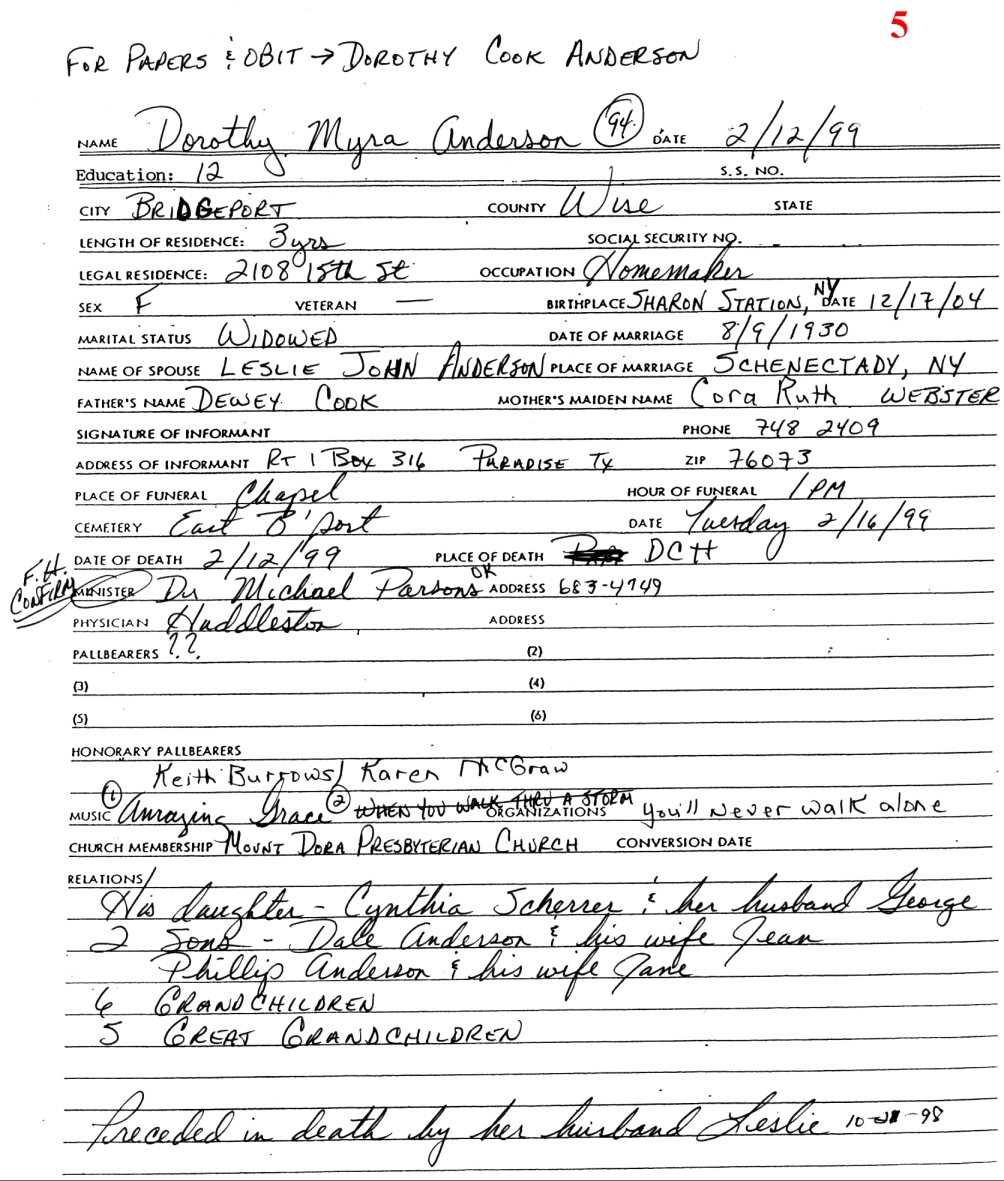 5
FOR PAPERS & OBIT → DOROTHY COOK ANDERSON
NAME Dorothy Myra Anderson (94) DATE 2/12/99
Education: 12 S.S. NO.
CITY BRIDGEPORT COUNTY Wise STATE
LENGTH OF RESIDENCE: 3 yrs SOCIAL SECURITY NO.
LEGAL RESIDENCE: 2108 15th St OCCUPATION Homemaker
SEX F VETERAN — BIRTHPLACE SHARON STATION, NY DATE 12/17/04
MARITAL STATUS WIDOWED DATE OF MARRIAGE 8/9/1930
NAME OF SPOUSE LESLIE JOHN ANDERSON PLACE OF MARRIAGE SCHENECTADY, NY
FATHER'S NAME DEWEY COOK MOTHER'S MAIDEN NAME Cora Ruth WEBSTER
SIGNATURE OF INFORMANT PHONE 748 2409
ADDRESS OF INFORMANT RT 1 Box 316 PARADISE TX ZIP 76073
PLACE OF FUNERAL Chapel HOUR OF FUNERAL 1 PM
CEMETERY East B'port DATE Tuesday 2/16/99
DATE OF DEATH 2/12/99 PLACE OF DEATH DCH
F.H. CONFIRM MINISTER Dr Michael Parsons OK ADDRESS 683-4749
PHYSICIAN Huddleston ADDRESS
PALLBEARERS ?? (2)
(3) (4)
(5) (6)
HONORARY PALLBEARERS
Keith Burrows/ Karen McGraw
MUSIC (1) Amazing Grace (2) WHEN YOU WALK THRU A STORM ORGANIZATIONS You'll Never walk alone
CHURCH MEMBERSHIP MOUNT DORA PRESBYTERIAN CHURCH CONVERSION DATE
RELATIONS/
His daughter - Cynthia Scherrer & her husband George
2 Sons - Dale Anderson & his wife Jean
Phillip Anderson & his wife Jane
6 GRANDCHILDREN
5 GREAT GRANDCHILDREN
Preceded in death by her husband Leslie 10- -98